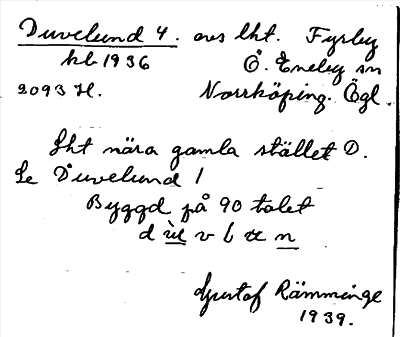 Duvelund 4. avs lht. Fyrby
kb 1936 Ö. Eneby sn
2093 H. Norrköping. Ögl
Lht nära gamla stället D.
Se Duvelund 1
Byggd på 90 talet
Gustaf Rämminge
1939.